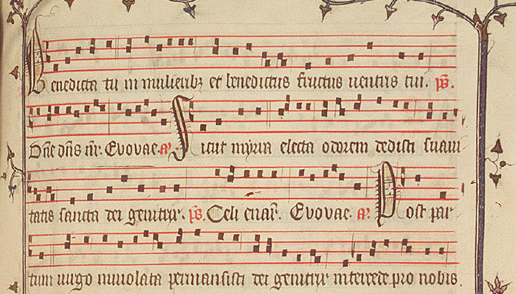 Benedicta tu in mulieribꝫ et benedictus fructus uentris tui. p̄s.
Dn̄e dn̄s nr̄. Evovae. a̅. Sicut myrra electa odorem dedisti suaui
tatis sancta dei genitrix. p̄s. Celi enar̄. Evovae. a̅. Post par
tum uirgo inuiolata permansisti dei genitrix intercede pro nobis.